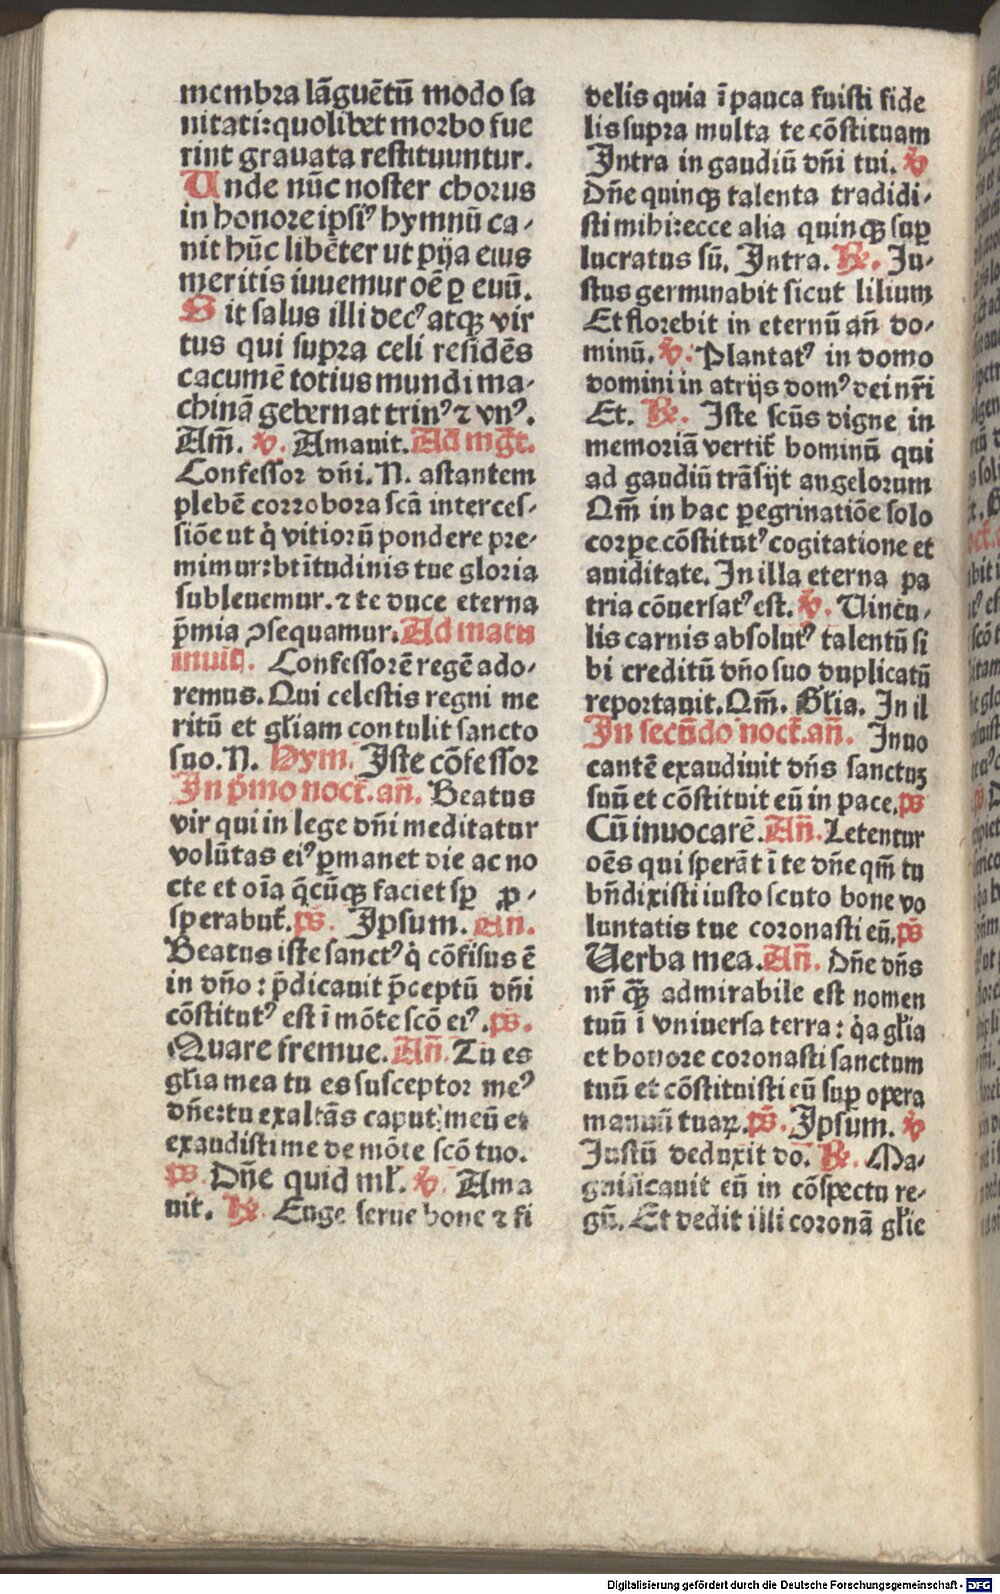 membra lãguẽtũ modo sa
nitati: quolibet morbo fue
rint grauata restituuntur.
Unde nũc noster chorus
in honore ipsiꝰ hymnũ ca-
nit hũc libẽter ut pija eius
meritis iuuemur oẽ ꝑ euũ.
Sit salus illi decꝰ atqꝫ vir
tus qui supra celi residẽs
cacumẽ totius mundi ma-
chinã gebernat trinꝰ ⁊ vnꝰ.
Am̃. ℣. Amauit. Ad mg̃t.
Confessor dñi. N. astantem
plebẽ corrobora scã interces-
siõe ut q̇ vitiorũ pondere pre-
mimur: bt̃itudinis tue gloria
subleuemur. ⁊ te duce eterna
p̃mia ꝯsequamur. Ad matu
inuit̃. Confessorẽ regẽ ado-
remus. Qui celestis regni me
ritũ et gl̃iam contulit sancto
suo. N. Hym. Iste cõfessor
In p̃mo noct̃. añ. Beatus
vir qui in lege dñi meditatur
volũtas eiꝰ ꝑmanet die ac no
cte et oĩa q̃cũqꝫ faciet sꝑ ꝓ-
sperabut̃. ps̃. Ipsum. Añ.
Beatus iste sanctꝰ q̇ cõfisus ẽ
in dño: p̃dicauit p̃ceptũ dñi
cõstitutꝰ est ĩ mõte scõ eiꝰ. ps̃.
Quare fremue. Añ. Tu es
gl̃ia mea tu es susceptor meꝰ
dñe: tu exaltãs caput meũ et
exaudisti me de mõte scõ tuo.
ps̃. Dñe quid ml̃. ℣. Ama
uit. ℟. Euge serue bone ⁊ fi
delis quia ĩ pauca fuisti fide
lis supra multa te cõstituam
Intra in gaudiũ dñi tui. ℣
Dñe quinqꝫ talenta tradidi-
sti mihi: ecce alia quinqꝫ suꝑ
lucratus sũ. Intra. ℟. Iu-
stus germinabit sicut lilium
Et florebit in eternũ añ do-
minũ. ℣. Plantatꝰ in domo
domini in atrijs domꝰ dei nr̃i
Et. ℟. Iste scũs digne in
memoriã vertit̃ hominũ qui
ad gaudiũ trãsijt angelorum
Qm̃ in hac ꝑegrinatiõe solo
corꝑe cõstitutꝰ cogitatione et
auiditate. In illa eterna pa
tria cõuersatꝰ est. ℣. Uincu-
lis carnis absolutꝰ talentũ si
bi creditũ dño suo duplicatũ
reportauit. Qm̃. Gl̃ia. In il
In secũdo noct̃. añ. Inuo
cantẽ exaudiuit dñs sanctuꝫ
suũ et cõstituit eũ in pace. ps̃
Cũ inuocarẽ. Añ. Letentur
oẽs qui sperãt ĩ te dñe qm̃ tu
bñdixisti iusto scuto bone vo
luntatis tue coronasti eũ. ps̃
Uerba mea. Añ. Dñe dñs
nr̃ qꝫ̃ admirabile est nomen
tuũ ĩ vniuersa terra: q̇a gl̃ia
et honore coronasti sanctum
tuũ et cõstituisti eũ suꝑ opera
manuũ tuaꝝ. ps̃. Ipsum. ℣
Iustũ deduxit do. ℟. Ma-
gnificauit eũ in cõspectu re-
gũ. Et dedit illi coronã gl̃ie
Digitalisierung gefördert durch die Deutsche Forschungsgemeinschaft - DFG